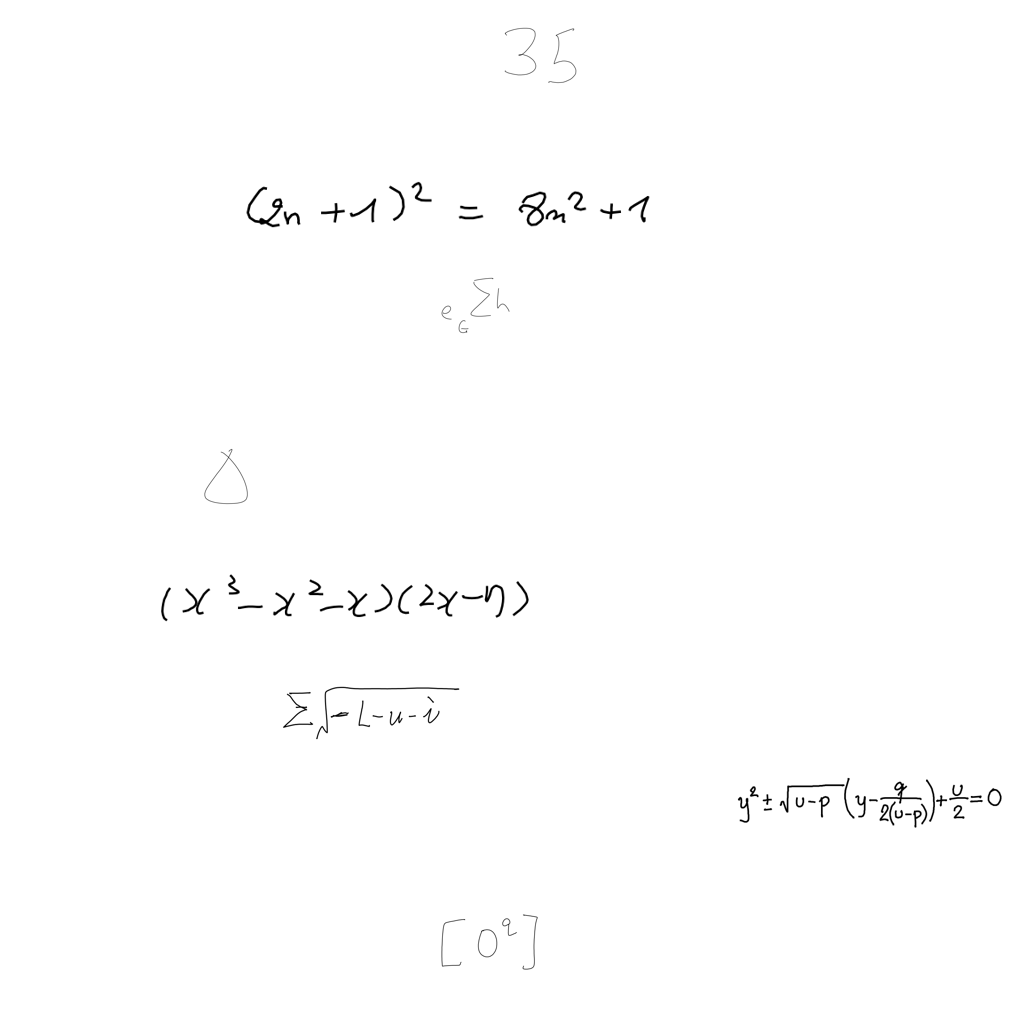 35
(2n+1)² = 8n²+1
e_G Σh
Δ
(x³-x²-x)(2x-η)
Σ√(-L-u-i)
y² ± √(u-p) (y - q/(2(u-p))) + u/2 = 0
[0^q]